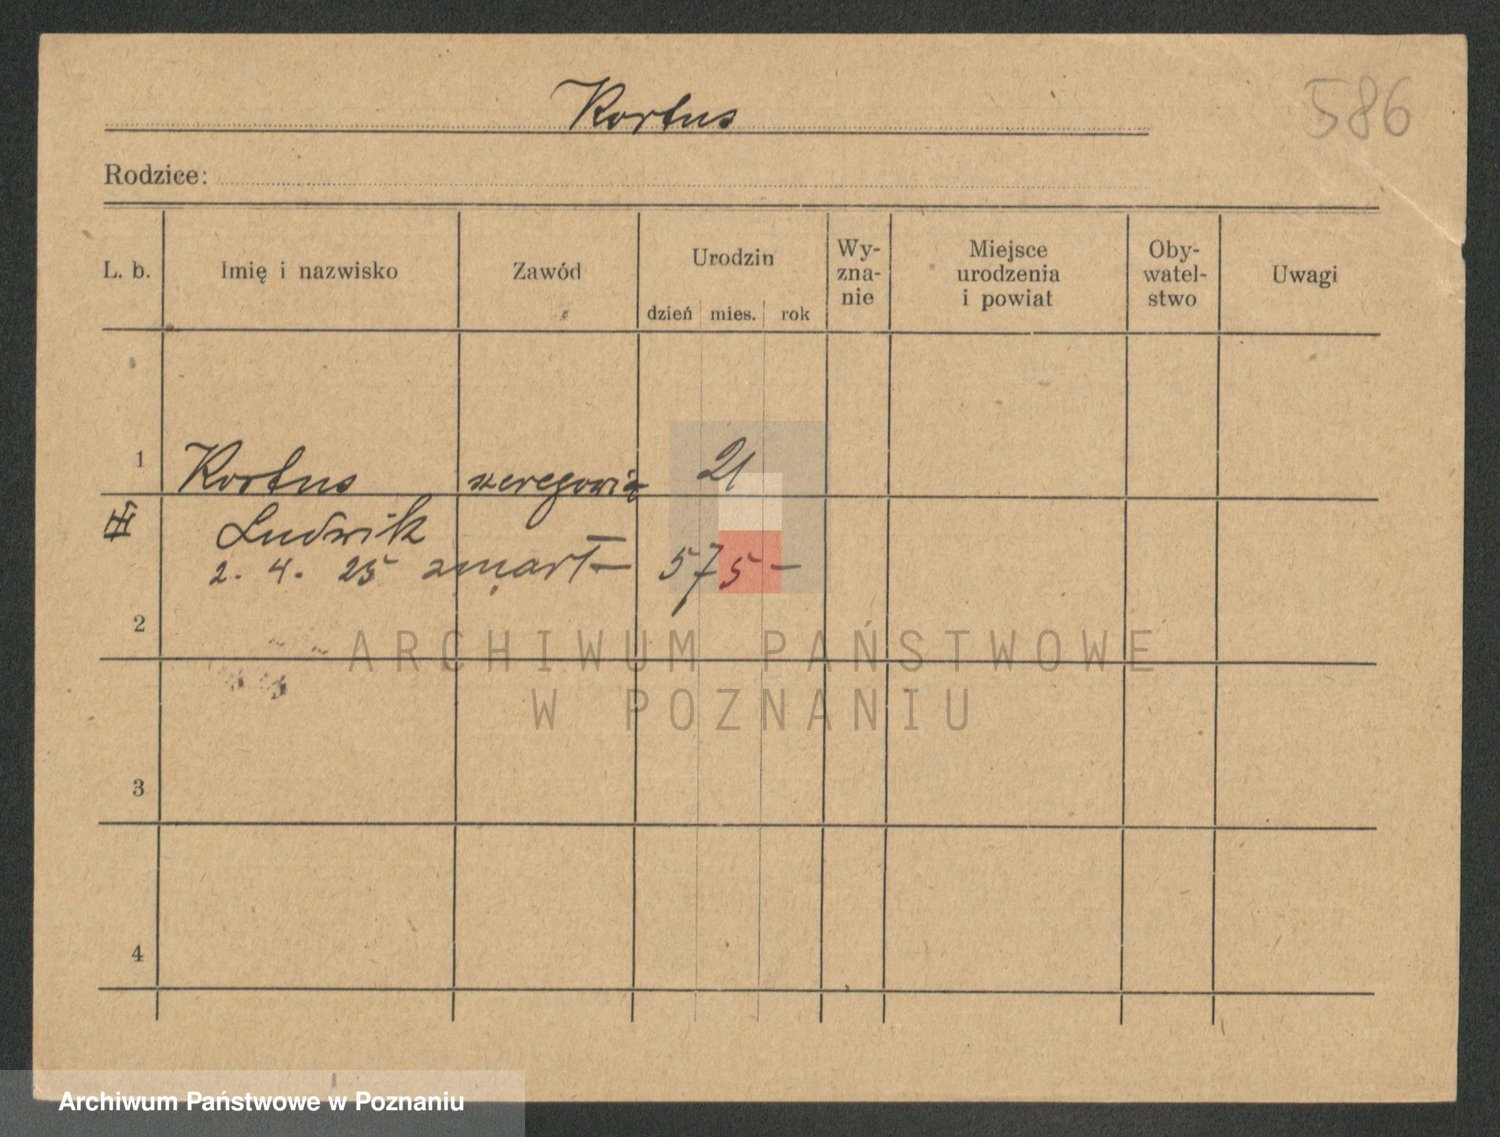 Kortus
586
Rodzice:
L. b. Imię i nazwisko Zawód Urodzin dzień mies. rok Wy-zna-nie Miejsce urodzenia i powiat Oby-watel-stwo Uwagi
1 Kortus szeregowiec 21
Ludwik
2. 4. 25 zmarł 575 -
2
ARCHIWUM PAŃSTWOWE
W POZNANIU
3
4
Archiwum Państwowe w Poznaniu